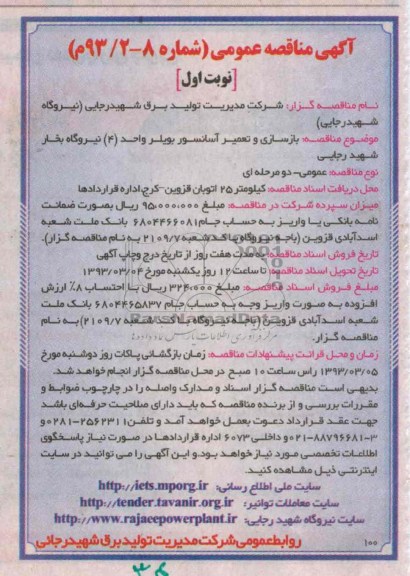 آگهی مناقصه عمومی (شماره ۸-۹۳/۲م)
[نوبت اول]
نـام مناقصـه گـزار: شـرکت مدیریت تولیـد بـرق شـهیدرجایی (نیـروگاه
شـهیدرجایی)
موضـوع مناقصه: بازسـازی و تعمیـر آسانسـور بویلـر واحـد (۴) نیـروگاه بخار
شـهید رجایـی
نوع مناقصه: عمومی- دو مرحله ای
محل دریافت اسناد مناقصه: کیلومتر ۲۵ اتوبان قزوین-کرج، اداره قراردادها
میـزان سـپرده شـرکت در مناقصه: مبلـغ ۹۵،۰۰۰،۰۰۰ ریـال بصورت ضمانت
نامـه بانکـی یـا واریـز بـه حسـاب جـام ۶۸۰۴۴۶۶۰۸۱ بانـک ملـت شـعبه
اسـدآبادی قزویـن (باجـه نیـروگاه بـا کـد شـعبه ۲۱۰۹/۷ بـه نـام مناقصه گـزار).
تاریخ فروش اسناد مناقصه: به مدت هفت روز از تاریخ درج وچاپ آگهی
تاریخ تحویل اسناد مناقصه: تا ساعت ۱۲ روز یکشنبه مورخ ۱۳۹۳/۰۳/۰۴
مبلـغ فـروش اسـناد مناقصـه: مبلـغ ۳۲۴،۰۰۰ ریال بـا احتسـاب ۸٪ ارزش
افزوده به صورت واریـز وجـه به حسـاب جـام ۶۸۰۴۴۶۵۸۳۷ بانک ملت
شعبه اسدآبادی قزوین (باجه نیروگاه با کد شعبه ۲۱۰۹/۷) به نام
مناقصه گزار.
زمان و محل قرائت پیشنهادات مناقصه: زمان بازگشائی پاکات روز دوشنبه مورخ
۱۳۹۳/۰۳/۰۵ راس ساعت ۱۰ صبح در محل مناقصه گزار انجام خواهد شد.
بدیهـی اسـت مناقصه گـزار اسـناد و مـدارک واصلـه را در چارچـوب ضوابـط و
مقـررات بررسـی و از برنـده مناقصـه کـه بایـد دارای صلاحیت حرفه‌ای باشـد
جهـت عقـد قـرارداد دعـوت بعمـل خواهـد آمـد و تلفـن ۲۵۶۲۳۱۱-۰۲۸۱و
۳-۸۸۷۹۶۶۸۱-۰۲۱و داخلـی ۶۰۷۳ اداره قراردادهـا در صورت نیـاز پاسـخگوی
اطلاعـات تخصصـی مـورد نیـاز خواهـد بـود.و ایـن آگهـی را مـی توانیـد در سـایت
اینترنتـی ذیـل مشـاهده کنیـد.
سایت ملی اطلاع رسانی: http://iets.mporg.ir
سایت معاملات توانیر: http://tender.tavanir.org.ir
سایت نیروگاه شهید رجایی: http://www.rajaeepowerplant.ir
۱۰۰ روابط عمومی شرکت مدیریت تولید برق شهیدرجائی